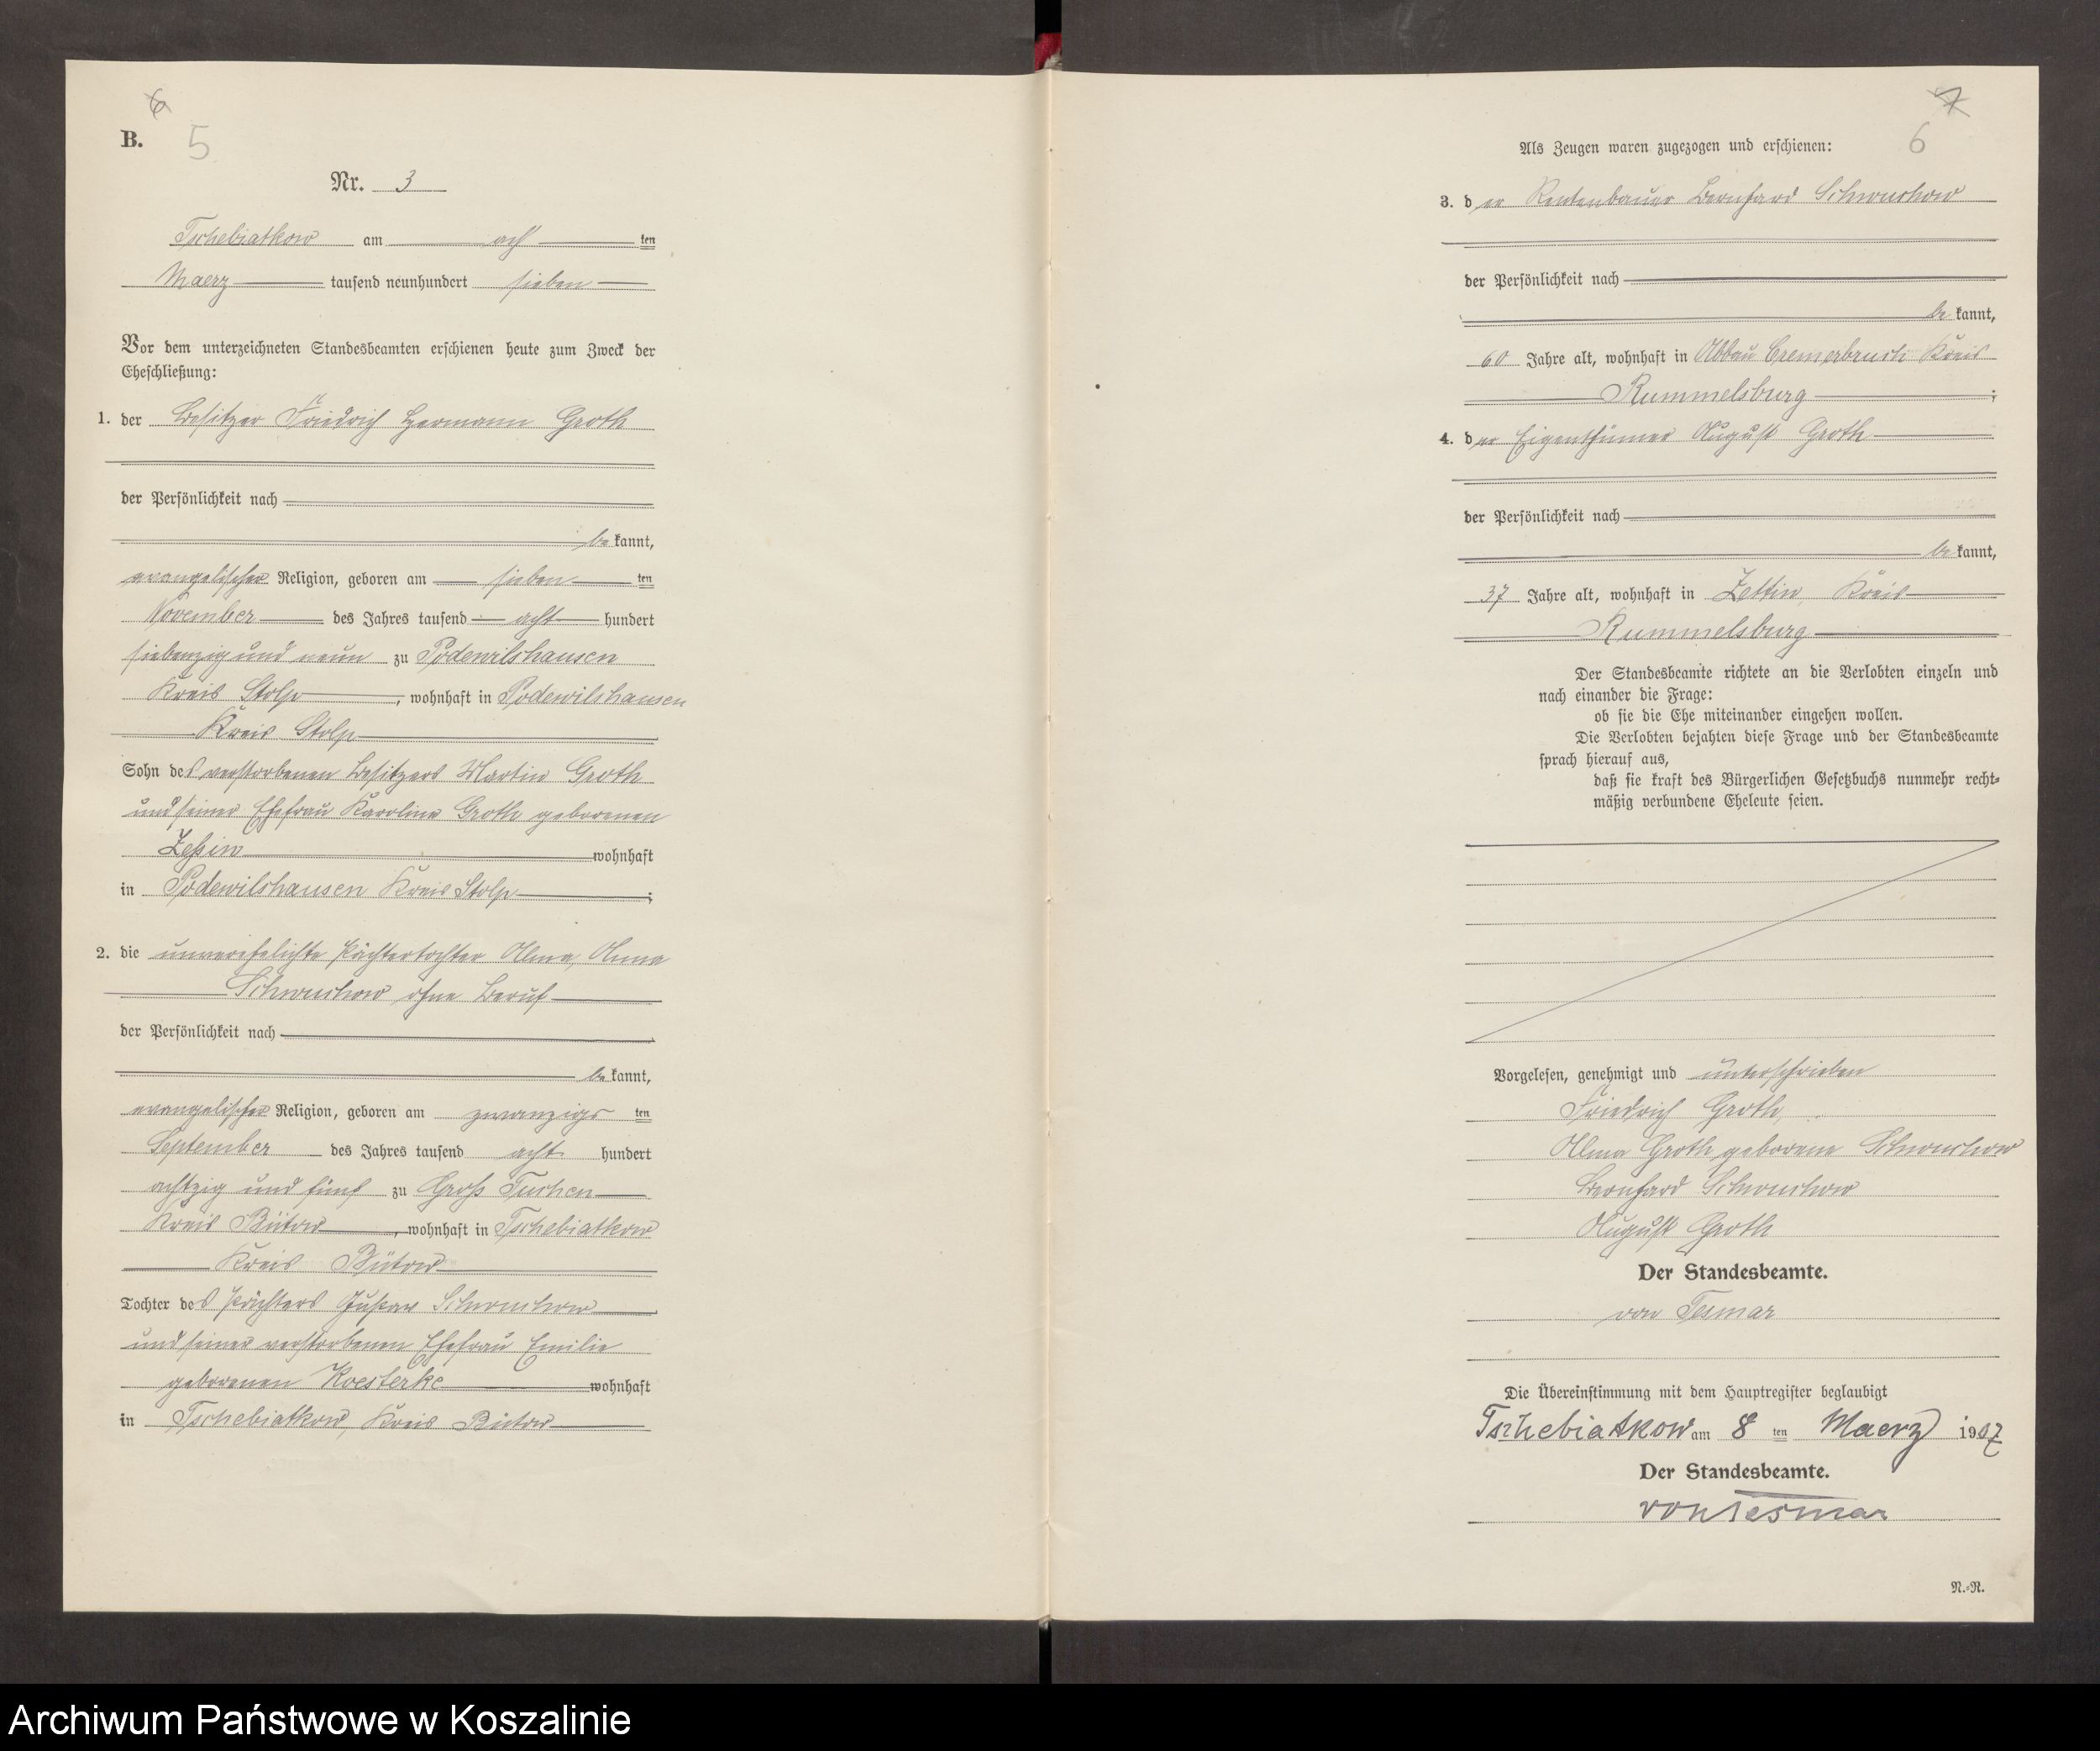 6
B. 5
Nr. 3
Tschebiatkow am acht ten
Maerz tausend neunhundert sieben
Vor dem unterzeichneten Standesbeamten erschienen heute zum Zweck der
Eheschließung:
1. der Besitzer Friedrich Hermann Groth
der Persönlichkeit nach
bekannt,
evangelischer Religion, geboren am sieben ten
November des Jahres tausend acht hundert
siebenzig und neun zu Podewilshausen
Kreis Stolp, wohnhaft in Podewilshausen
Kreis Stolp
Sohn des verstorbenen Besitzers Martin Groth
und seiner Ehefrau Karoline Groth geborenen
Zessin wohnhaft
in Podewilshausen Kreis Stolp;
2. die unverehelichte Pächtertochter Alma, Anna
Schwuchow ohne Beruf
der Persönlichkeit nach
bekannt,
evangelischer Religion, geboren am zwanzigs ten
September des Jahres tausend acht hundert
achtzig und fünf zu Groß Tuchen
Kreis Bütow, wohnhaft in Tschebiatkow
Kreis Bütow
Tochter des Pächters Gustav Schwuchow
und seiner verstorbenen Ehefrau Emilie
geborenen Koesterke wohnhaft
in Tschebiatkow, Kreis Bütow
7
6
Als Zeugen waren zugezogen und erschienen:
3. der Rentenbauer Bernhard Schwuchow
der Persönlichkeit nach
bekannt,
60 Jahre alt, wohnhaft in Abbau Cremerbruch Kreis
Rummelsburg;
4. der Eigenthümer August Groth
der Persönlichkeit nach
bekannt,
37 Jahre alt, wohnhaft in Zettin, Kreis
Rummelsburg
Der Standesbeamte richtete an die Verlobten einzeln und
nach einander die Frage:
ob sie die Ehe miteinander eingehen wollen.
Die Verlobten bejahten diese Frage und der Standesbeamte
sprach hierauf aus,
daß sie kraft des Bürgerlichen Gesetzbuchs nunmehr recht-
mäßig verbundene Eheleute seien.
Vorgelesen, genehmigt und unterschrieben
Friedrich Groth,
Alma Groth geborene Schwuchow
Bernhard Schwuchow
August Groth
Der Standesbeamte.
von Tesmar
Die Übereinstimmung mit dem Hauptregister beglaubigt
Tschebiatkow am 8 ten Maerz 1907
Der Standesbeamte.
von Tesmar
N.-R.
Archiwum Państwowe w Koszalinie